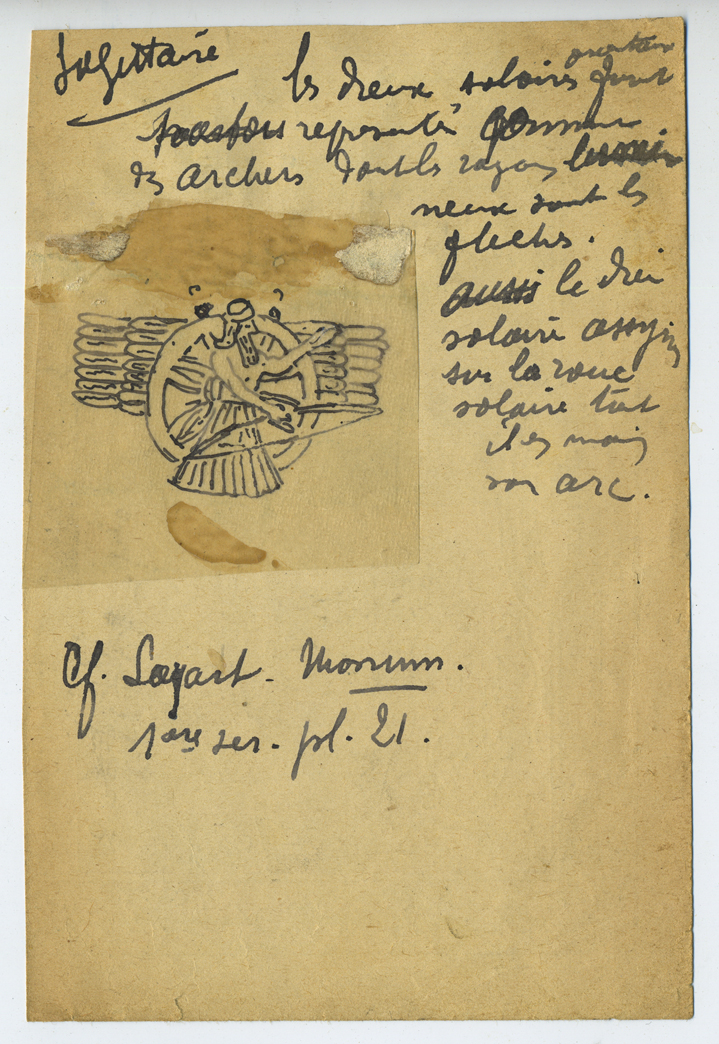 Sagittaire
orientaux
les dieux solaires sont
représentés comme
des archers dont les rayons lumi
neux sont les
flèches.
aussi le dieu
solaire assyrien
sur la roue
solaire tient
à les mains
son arc.
Cf. Layart - Monum.
1ère ser. pl. 21.